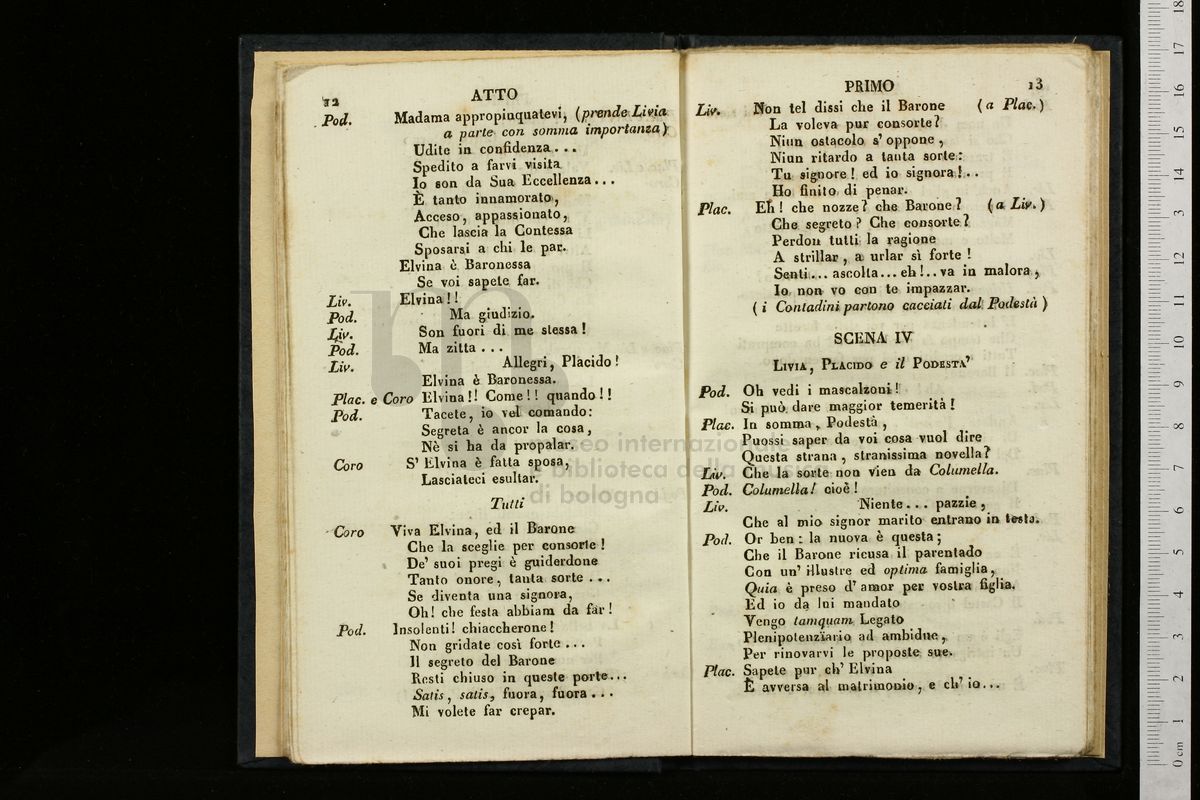 12
ATTO
Pod. Madama appropinquatevi, (prende Livia
a parte con somma importanza)
Udite in confidenza...
Spedito a farvi visita
Io son da Sua Eccellenza...
È tanto innamorato,
Acceso, appassionato,
Che lascia la Contessa
Sposarsi a chi le par.
Elvina è Baronessa
Se voi sapete far.
Liv. Elvina!!
Pod. Ma giudizio.
Liv. Son fuori di me stessa!
Pod. Ma zitta...
Liv. Allegri, Placido!
Elvina è Baronessa.
Plac. e Coro Elvina!! Come!! quando!!
Pod. Tacete, io vel comando:
Segreta è ancor la cosa,
Nè si ha da propalar.
Coro S' Elvina è fatta sposa,
Lasciateci esultar.
Tutti
Coro Viva Elvina, ed il Barone
Che la sceglie per consorte!
De' suoi pregi è guiderdone
Tanto onore, tanta sorte...
Se diventa una signora,
Oh! che festa abbiam da far!
Pod. Insolenti! chiaccherone!
Non gridate così forte...
Il segreto del Barone
Resti chiuso in queste porte...
Satis, satis, fuora, fuora...
Mi volete far crepar.
PRIMO
13
Liv. Non tel dissi che il Barone (a Plac.)
La voleva pur consorte?
Niun ostacolo s' oppone,
Niun ritardo a tanta sorte:
Tu signore! ed io signora!..
Ho finito di penar.
Plac. Eh! che nozze? che Barone? (a Liv.)
Che segreto? Che consorte?
Perdon tutti la ragione
A strillar, a urlar sì forte!
Senti... ascolta... eh!.. va in malora,
Io non vo con te impazzar.
(i Contadini partono cacciati dal Podestà)
SCENA IV
LIVIA, PLACIDO e il PODESTA'
Pod. Oh vedi i mascalzoni!
Si può dare maggior temerità!
Plac. In somma, Podestà,
Puossi saper da voi cosa vuol dire
Questa strana, stranissima novella?
Liv. Che la sorte non vien da Columella.
Pod. Columella! cioè!
Liv. Niente... pazzie,
Che al mio signor marito entrano in testa.
Pod. Or ben: la nuova è questa;
Che il Barone ricusa il parentado
Con un' illustre ed optima famiglia,
Quia è preso d' amor per vostra figlia.
Ed io da lui mandato
Vengo tamquam Legato
Plenipotenziario ad ambidue,
Per rinovarvi le proposte sue.
Plac. Sapete pur ch' Elvina
È avversa al matrimonio, e ch' io...
museo internazionale
e biblioteca della musica
di bologna
0 cm 1 2 3 4 5 6 7 8 9 10 11 12 13 14 15 16 17 18